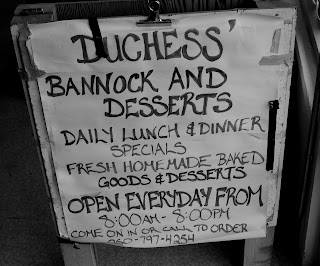 DUCHESS'
BANNOCK AND
DESSERTS
DAILY LUNCH & DINNER
SPECIALS
FRESH HOMEMADE BAKED
GOODS & DESSERTS
OPEN EVERYDAY FROM
8:00AM - 8:00PM
COME ON IN OR CALL TO ORDER
250-797-4254